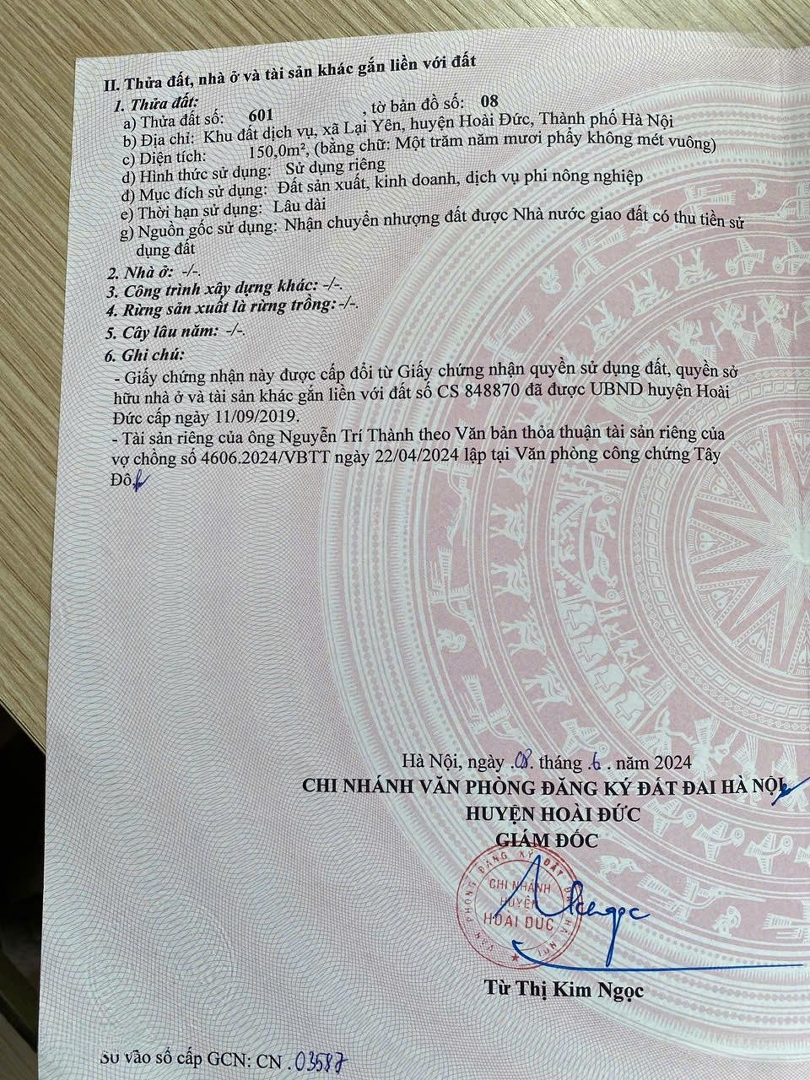 II. Thửa đất, nhà ở và tài sản khác gắn liền với đất
1. Thửa đất:
a) Thửa đất số: 601 , tờ bản đồ số: 08
b) Địa chỉ: Khu đất dịch vụ, xã Lại Yên, huyện Hoài Đức, Thành phố Hà Nội
c) Diện tích: 150,0m², (bằng chữ: Một trăm năm mươi phẩy không mét vuông)
d) Hình thức sử dụng: Sử dụng riêng
đ) Mục đích sử dụng: Đất sản xuất, kinh doanh, dịch vụ phi nông nghiệp
e) Thời hạn sử dụng: Lâu dài
g) Nguồn gốc sử dụng: Nhận chuyển nhượng đất được Nhà nước giao đất có thu tiền sử
dụng đất
2. Nhà ở: -/-.
3. Công trình xây dựng khác: -/-.
4. Rừng sản xuất là rừng trồng:-/-.
5. Cây lâu năm: -/-.
6. Ghi chú:
- Giấy chứng nhận này được cấp đổi từ Giấy chứng nhận quyền sử dụng đất, quyền sở
hữu nhà ở và tài sản khác gắn liền với đất số CS 848870 đã được UBND huyện Hoài
Đức cấp ngày 11/09/2019.
- Tài sản riêng của ông Nguyễn Trí Thành theo Văn bản thỏa thuận tài sản riêng của
vợ chồng số 4606.2024/VBTT ngày 22/04/2024 lập tại Văn phòng công chứng Tây
Đô.
Hà Nội, ngày .08. tháng .6 . năm 2024
CHI NHÁNH VĂN PHÒNG ĐĂNG KÝ ĐẤT ĐAI HÀ NỘI
HUYỆN HOÀI ĐỨC
GIÁM ĐỐC
VĂN PHÒNG ĐĂNG KÝ ĐẤT ĐAI HÀ NỘI
CHI NHÁNH
HUYỆN
HOÀI ĐỨC
Từ Thị Kim Ngọc
Số vào sổ cấp GCN: CN .03587